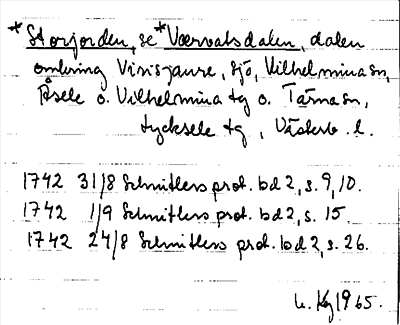 *Storjorden, se *Værvatsdalen, dalen
omkring Virisjaure, sjö, Vilhelmina sn,
Åsele o. Vilhelmina tg o. Tärna sn,
Lycksele tg, Västerb. l.
1742 31/8 Schnitlers prot. bd 2, s. 9, 10.
1742 1/9 Schnitlers prot. bd 2, s. 15.
1742 24/8 Schnitlers prot. bd 2, s. 26.
1965.